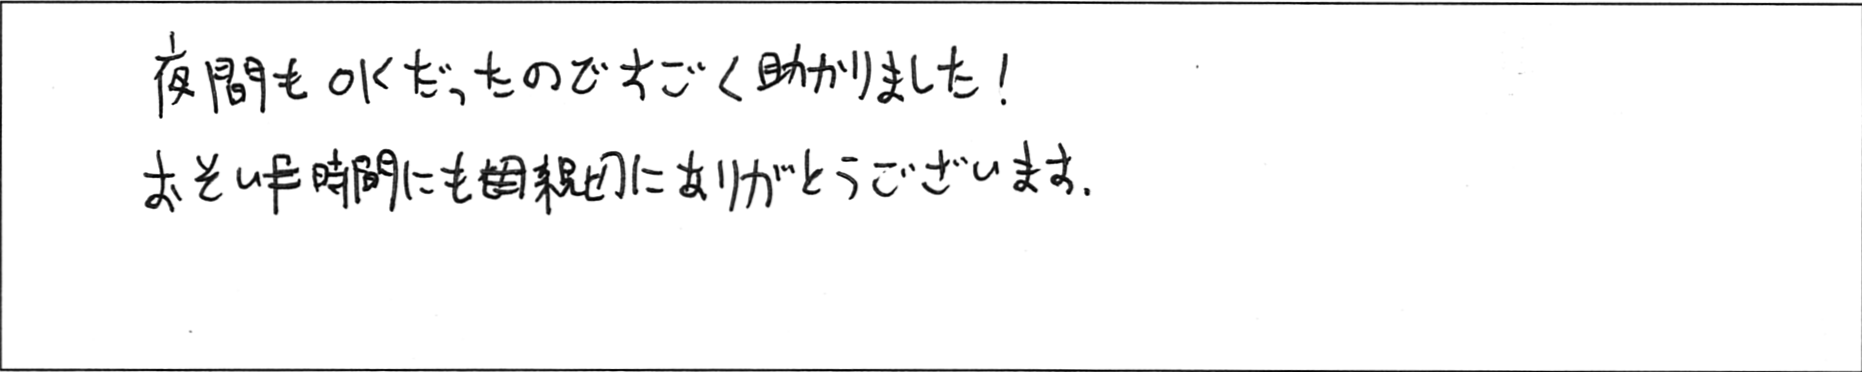 夜間もOKだったのですごく助かりました!
おそい時間にも親切にありがとうございます.